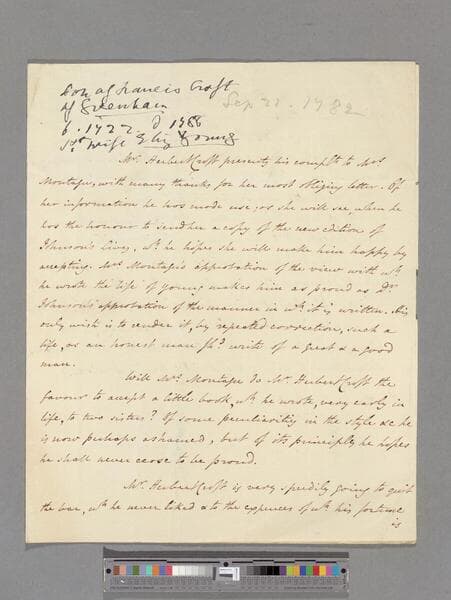 Son of Francis Croft
of Greenham
b. 1722. d 1788
1st wife Eliz Young
Sep 21. 1782
Mr. Herbert Croft presents his complts to Mrs
Montagu, with many thanks for her most obliging letter. Of
her information he has made use; as she will see, when he
has the honour to send her a copy of the new edition of
Johnson's Lives, wh he hopes she will make him happy by
accepting. Mrs Montagu's approbation of the view with wh.
he wrote the life of Young makes him as proud as Dr
Johnson's approbation of the manner in wh. it is written. His
only wish is to render it, by repeated correction, such a
life, as an honest man shd. write of a great & a good
man.
Will Mrs. Montagu do Mr. Herbert Croft the
favour to accept a little book, wh. he wrote, very early in
life, to two sisters? Of some peculiarities in the style &c he
is now perhaps ashamed, but of its principles he hopes
he shall never cease to be proud.
Mr. Herbert Croft is very speedily going to quit
the bar, wh. he never liked & to the expences of wh. his fortune
is